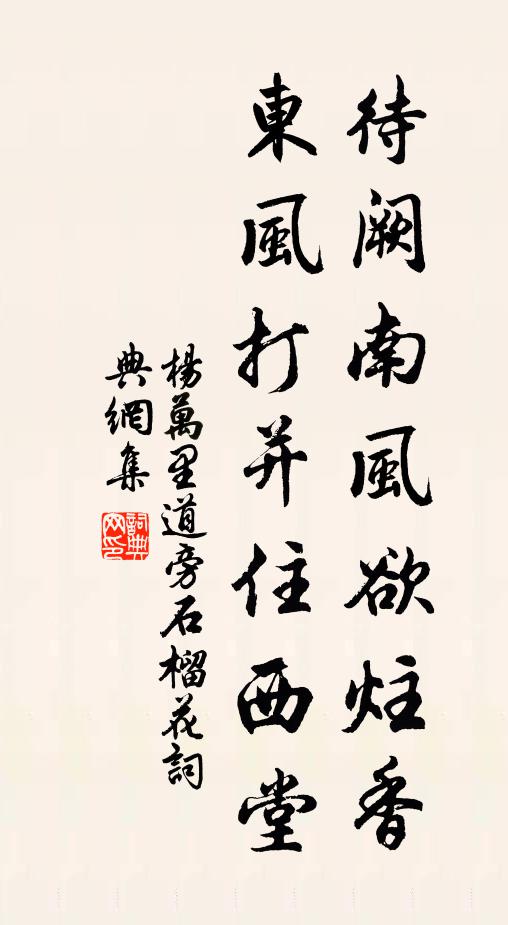 待闕南風欲炷香
東風打并住西堂
楊萬里道旁石榴花詞
典網集
詞典網印